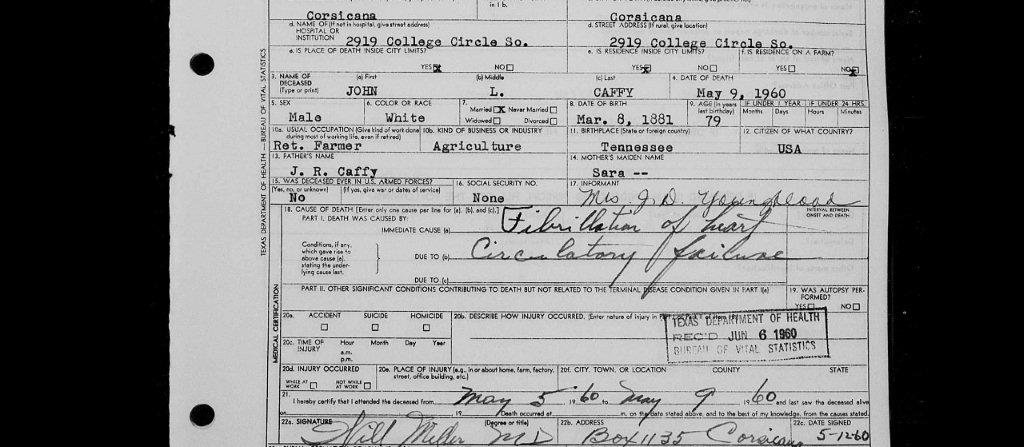 in 1 b.
Corsicana Corsicana
d. NAME OF (If not in hospital, give street address) HOSPITAL OR INSTITUTION 2919 College Circle So. d. STREET ADDRESS (If rural, give location) 2919 College Circle So.
e. IS PLACE OF DEATH INSIDE CITY LIMITS? e. IS RESIDENCE INSIDE CITY LIMITS? f. IS RESIDENCE ON A FARM?
YES X NO YES X NO YES NO X
3. NAME OF DECEASED (Type or print) (a) First (b) Middle (c) Last 4. DATE OF DEATH
JOHN L. CAFFY May 9, 1960
5. SEX 6. COLOR OR RACE 7. Married X Never Married Widowed Divorced 8. DATE OF BIRTH 9. AGE (In years last birthday) IF UNDER 1 YEAR IF UNDER 24 HRS.
Months Days Hours Minutes
Male White Mar. 8, 1881 79
10a. USUAL OCCUPATION (Give kind of work done during most of working life, even if retired) 10b. KIND OF BUSINESS OR INDUSTRY 11. BIRTHPLACE (State or foreign country) 12. CITIZEN OF WHAT COUNTRY?
Ret. Farmer Agriculture Tennessee USA
13. FATHER'S NAME 14. MOTHER'S MAIDEN NAME
J. R. Caffy Sara --
15. WAS DECEASED EVER IN U.S. ARMED FORCES? 16. SOCIAL SECURITY NO. 17. INFORMANT
(Yes, no, or unknown) (If yes, give war or dates of service)
No None Mrs. J. D. Youngblood
18. CAUSE OF DEATH [Enter only one cause per line for (a), (b), and (c).] INTERVAL BETWEEN ONSET AND DEATH
PART I. DEATH WAS CAUSED BY:
IMMEDIATE CAUSE (a) Fibrillation of heart
Conditions, if any, which gave rise to above cause (a), stating the underlying cause last.
DUE TO (b) Circulatory failure
DUE TO (c)
PART II. OTHER SIGNIFICANT CONDITIONS CONTRIBUTING TO DEATH BUT NOT RELATED TO THE TERMINAL DISEASE CONDITION GIVEN IN PART I(a) 19. WAS AUTOPSY PERFORMED?
YES NO
20a. ACCIDENT SUICIDE HOMICIDE 20b. DESCRIBE HOW INJURY OCCURRED. (Enter nature of injury in
TEXAS DEPARTMENT OF HEALTH
REC'D JUN 6 1960
BUREAU OF VITAL STATISTICS
20c. TIME OF INJURY Hour Month Day Year
a.m.
p.m.
20d. INJURY OCCURRED 20e. PLACE OF INJURY (e.g., in or about home, farm, factory, street, office building, etc.) 20f. CITY, TOWN, OR LOCATION COUNTY STATE
WHILE AT WORK NOT WHILE AT WORK
21. I hereby certify that I attended the deceased from May 5 1960 to May 9 1960 and last saw the deceased alive
on 19 Death occurred at m. on the date stated above, and to the best of my knowledge, from the causes stated.
22a. SIGNATURE (Degree or title) 22b. ADDRESS 22c. DATE SIGNED
Will Miller MD Box 1135 Corsicana 5-12-60
TEXAS DEPARTMENT OF HEALTH—BUREAU OF VITAL STATISTICS
MEDICAL CERTIFICATION